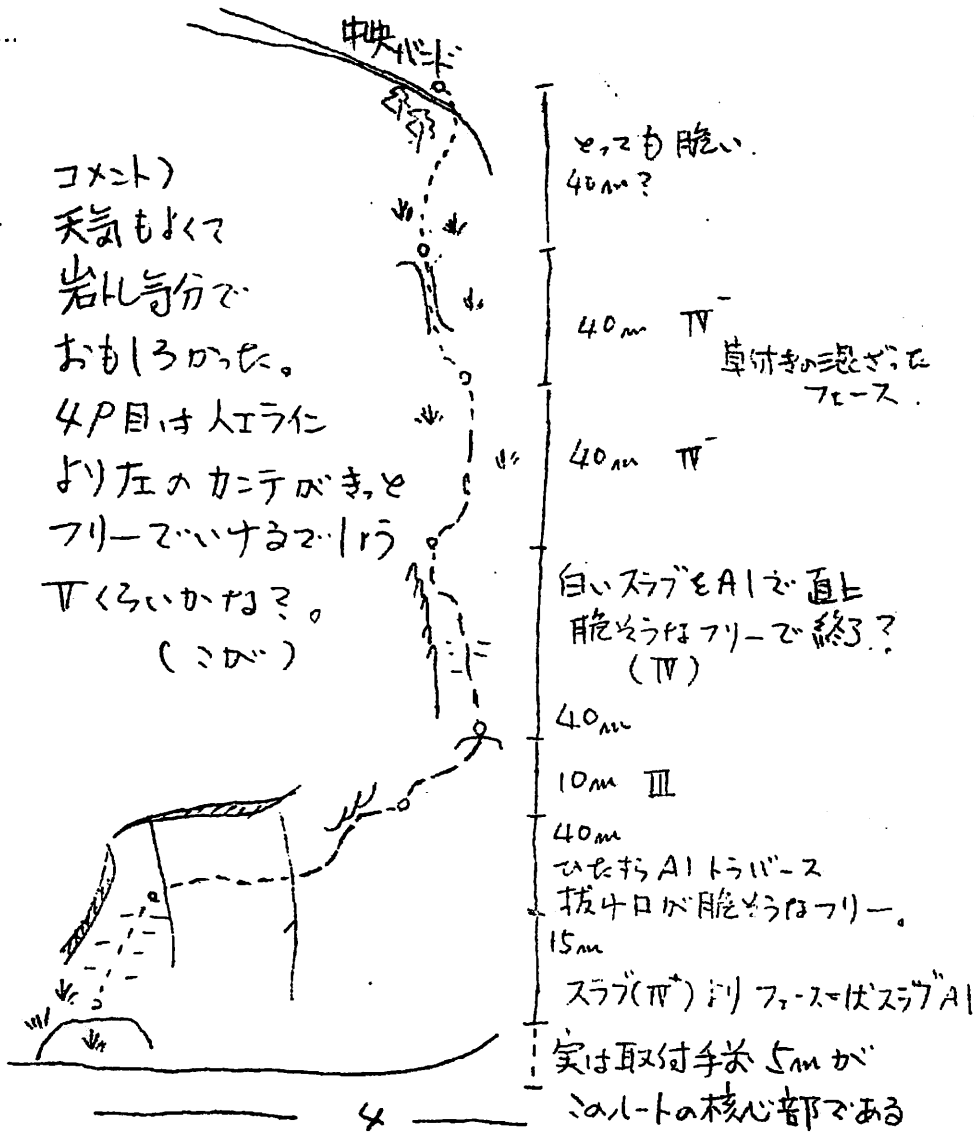 中央バンド
コメント)
天気もよくて
岩トレ気分で
おもしろかった。
4P目は人工ライン
より左のカンテがきっと
フリーでいけるでしょう
Ⅴくらいかな?。
(こが)
とっても脆い.
40m?
40m Ⅳ⁻
草付きの混ざった
フェース.
40m Ⅳ⁻
白いスラブをA1で直上
脆そうなフリーで終了?
(Ⅳ)
40m
10m Ⅲ
40m
ひたすらA1トラバース
抜け口が脆そうなフリー。
15m
スラブ(Ⅳ⁺)より フェース状スラブA1
実は取付手前5mが
このルートの核心部である
4